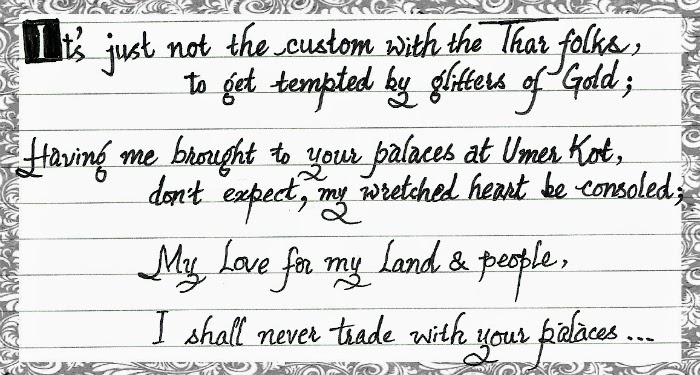 It's just not the custom with the Thar folks,
to get tempted by glitters of Gold;
Having me brought to your palaces at Umer Kot,
don't expect, my wretched heart be consoled;
My Love for my Land & people,
I shall never trade with your palaces...